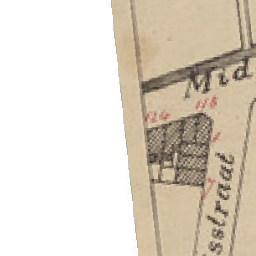 Mid
124
118
1
sstraat